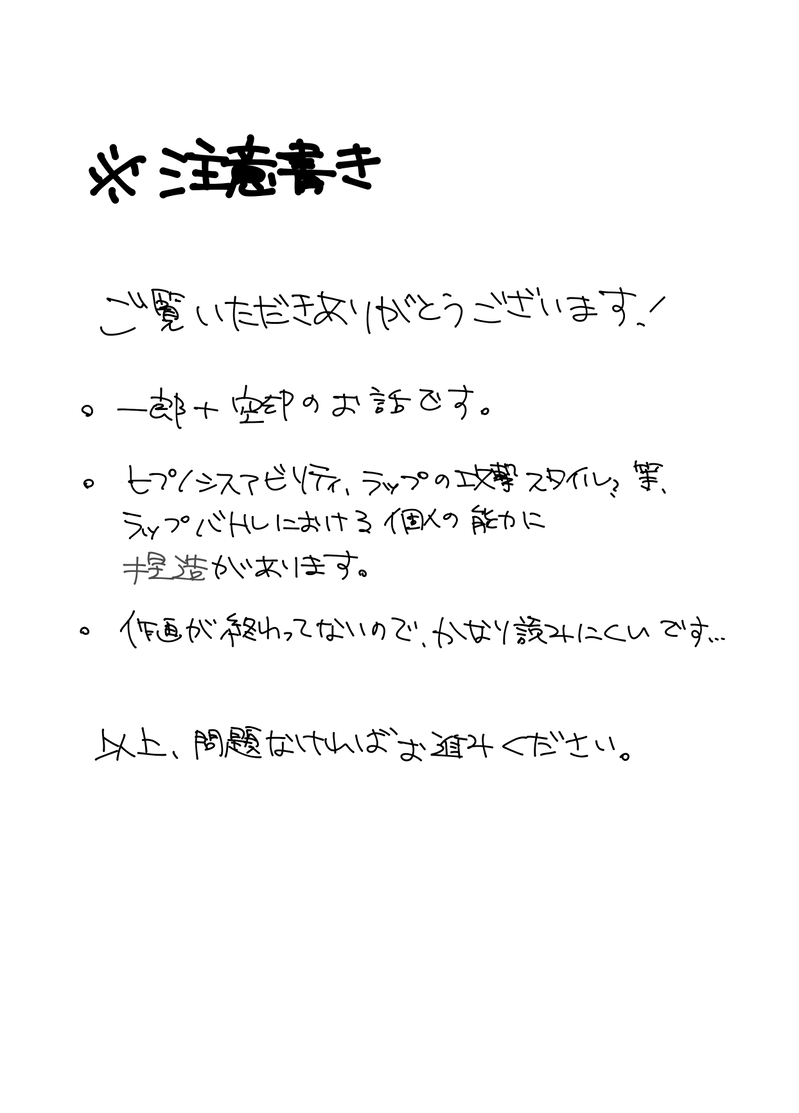 ※注意書き
ご覧いただきありがとうございます!
。一郎+空却のお話です。
。ヒプノシスアビリティ、ラップの攻撃スタイル?等、
ラップバトルにおける個人の能力に
捏造があります。
。作画が終わってないので、かなり読みにくいです…
以上、問題なければお進みください。